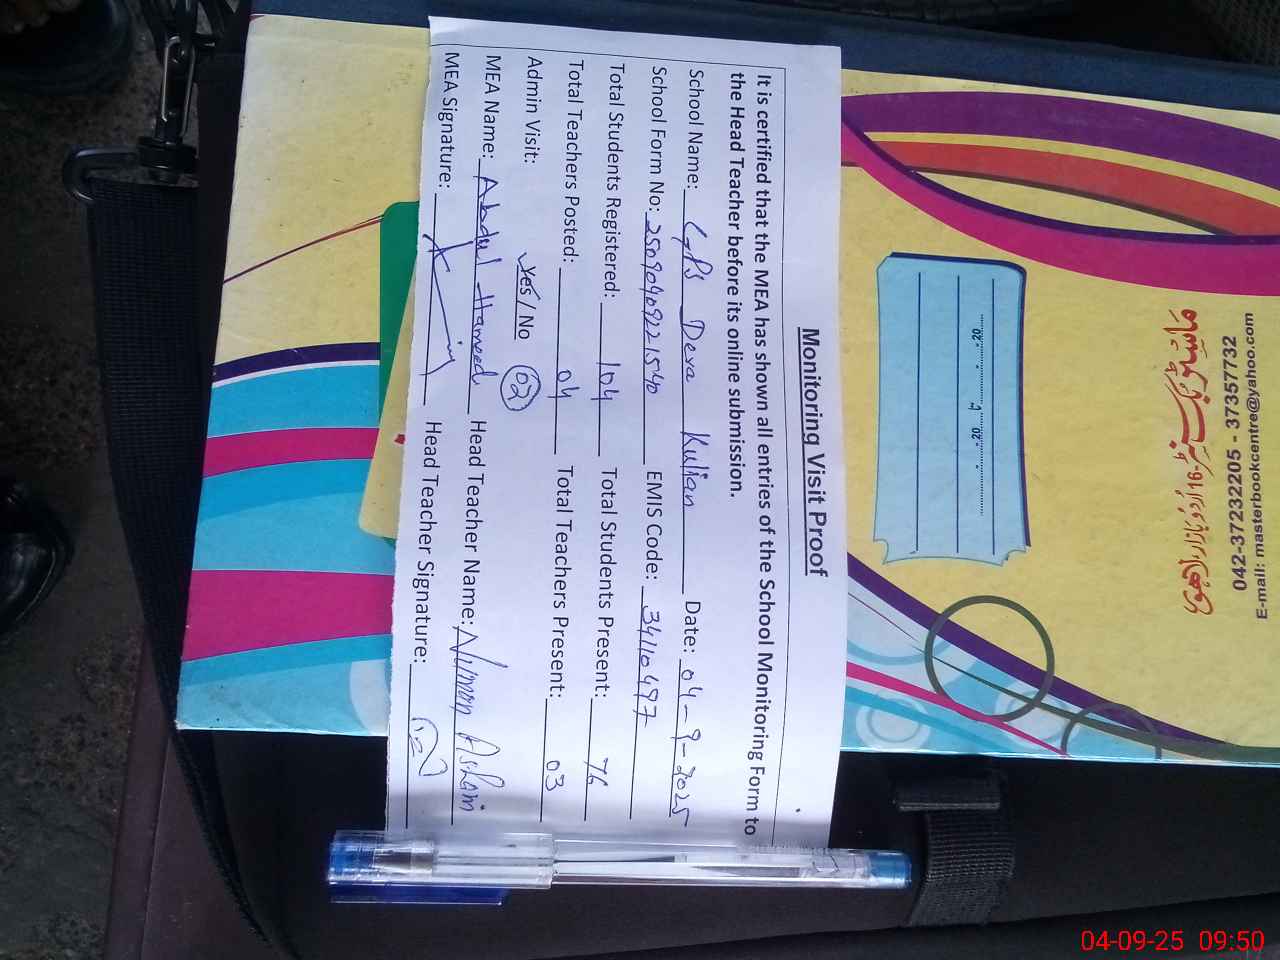 Monitoring Visit Proof
It is certified that the MEA has shown all entries of the School Monitoring Form to
the Head Teacher before its online submission.
School Name: GPS Dera Kulian Date: 04-9-2025
School Form No: 2509040921540 EMIS Code: 34110497
Total Students Registered: 104 Total Students Present: 76
Total Teachers Posted: 04 Total Teachers Present: 03
Admin Visit: Yes / No 02
MEA Name: Abdul Hameed Head Teacher Name:
MEA Signature: Head Teacher Signature:
042-37232205 - 37357732
E-mail: masterbookcentre@yahoo.com
04-09-25 09:50